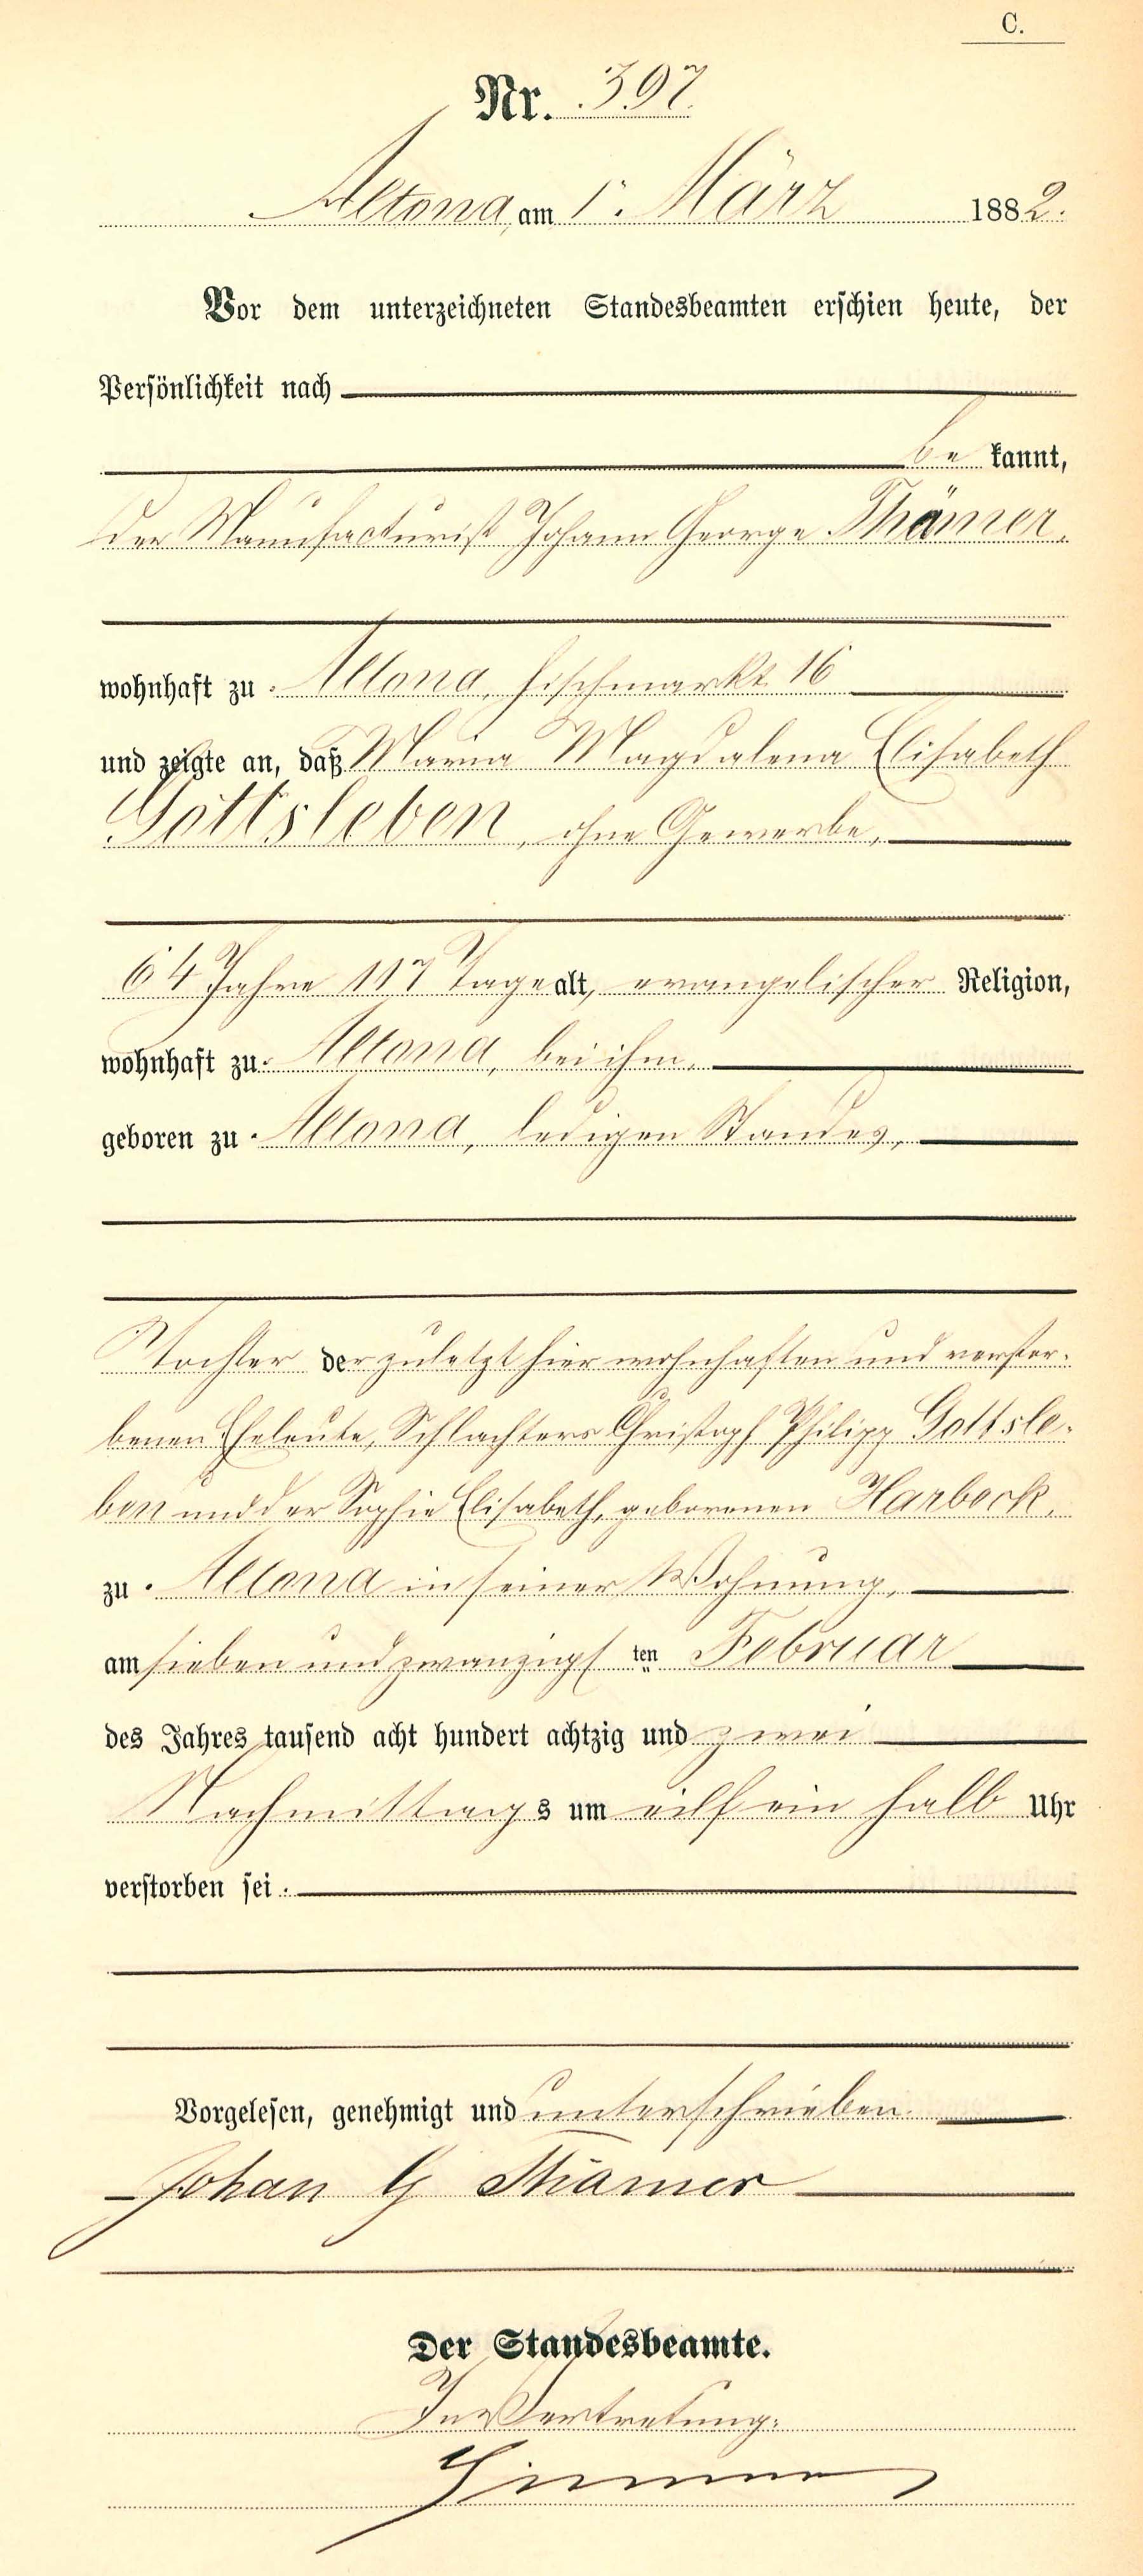 C.
Nr. 397.
Altona, am 1. März 1882.
Vor dem unterzeichneten Standesbeamten erschien heute, der
Persönlichkeit nach
be kannt,
der Manufacturist Johann George Thämer,
wohnhaft zu Altona, Fischmarkt 16
und zeigte an, daß Maria Magdalena Elisabeth
Gottsleben, ohne Gewerbe,
64 Jahre 117 Tage alt, evangelischer Religion,
wohnhaft zu Altona, bei ihm,
geboren zu Altona, ledigen Standes,
Tochter der zuletzt hier wohnhaften und verstor-
benen Eheleute, Schlachters Christoph Philipp Gottsle-
ben und der Sophie Elisabeth, geborenen Harbeck,
zu Altona in seiner Wohnung,
am sieben und zwanzigsten Februar
des Jahres tausend acht hundert achtzig und zwei
Nachmittags um eilf ein halb Uhr
verstorben sei.
Vorgelesen, genehmigt und unterschrieben.
Johan G Thämer
Der Standesbeamte.
In Vertretung: